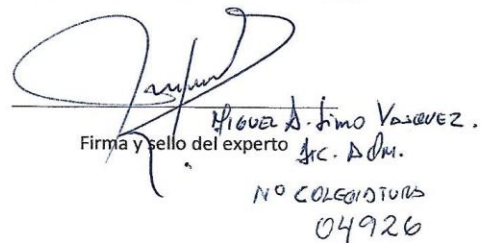 Miguel A. Limo Vasquez.
Firma y sello del experto
Lic. Adm.
Nº COLEGIATURA
04926